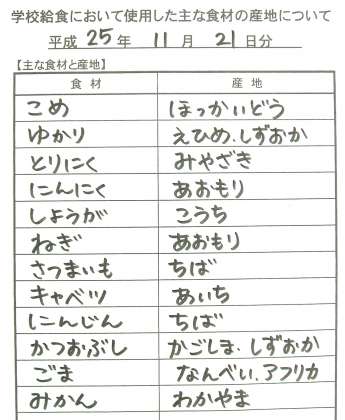 学校給食において使用した主な食材の産地について
平成 25 年 11 月 21 日分
【主な食材と産地】
食材 産地
こめ ほっかいどう
ゆかり えひめ、しずおか
とりにく みやざき
にんにく あおもり
しょうが こうち
ねぎ あおもり
さつまいも ちば
キャベツ あいち
にんじん ちば
かつおぶし かごしま、しずおか
ごま なんべい、アフリカ
みかん わかやま